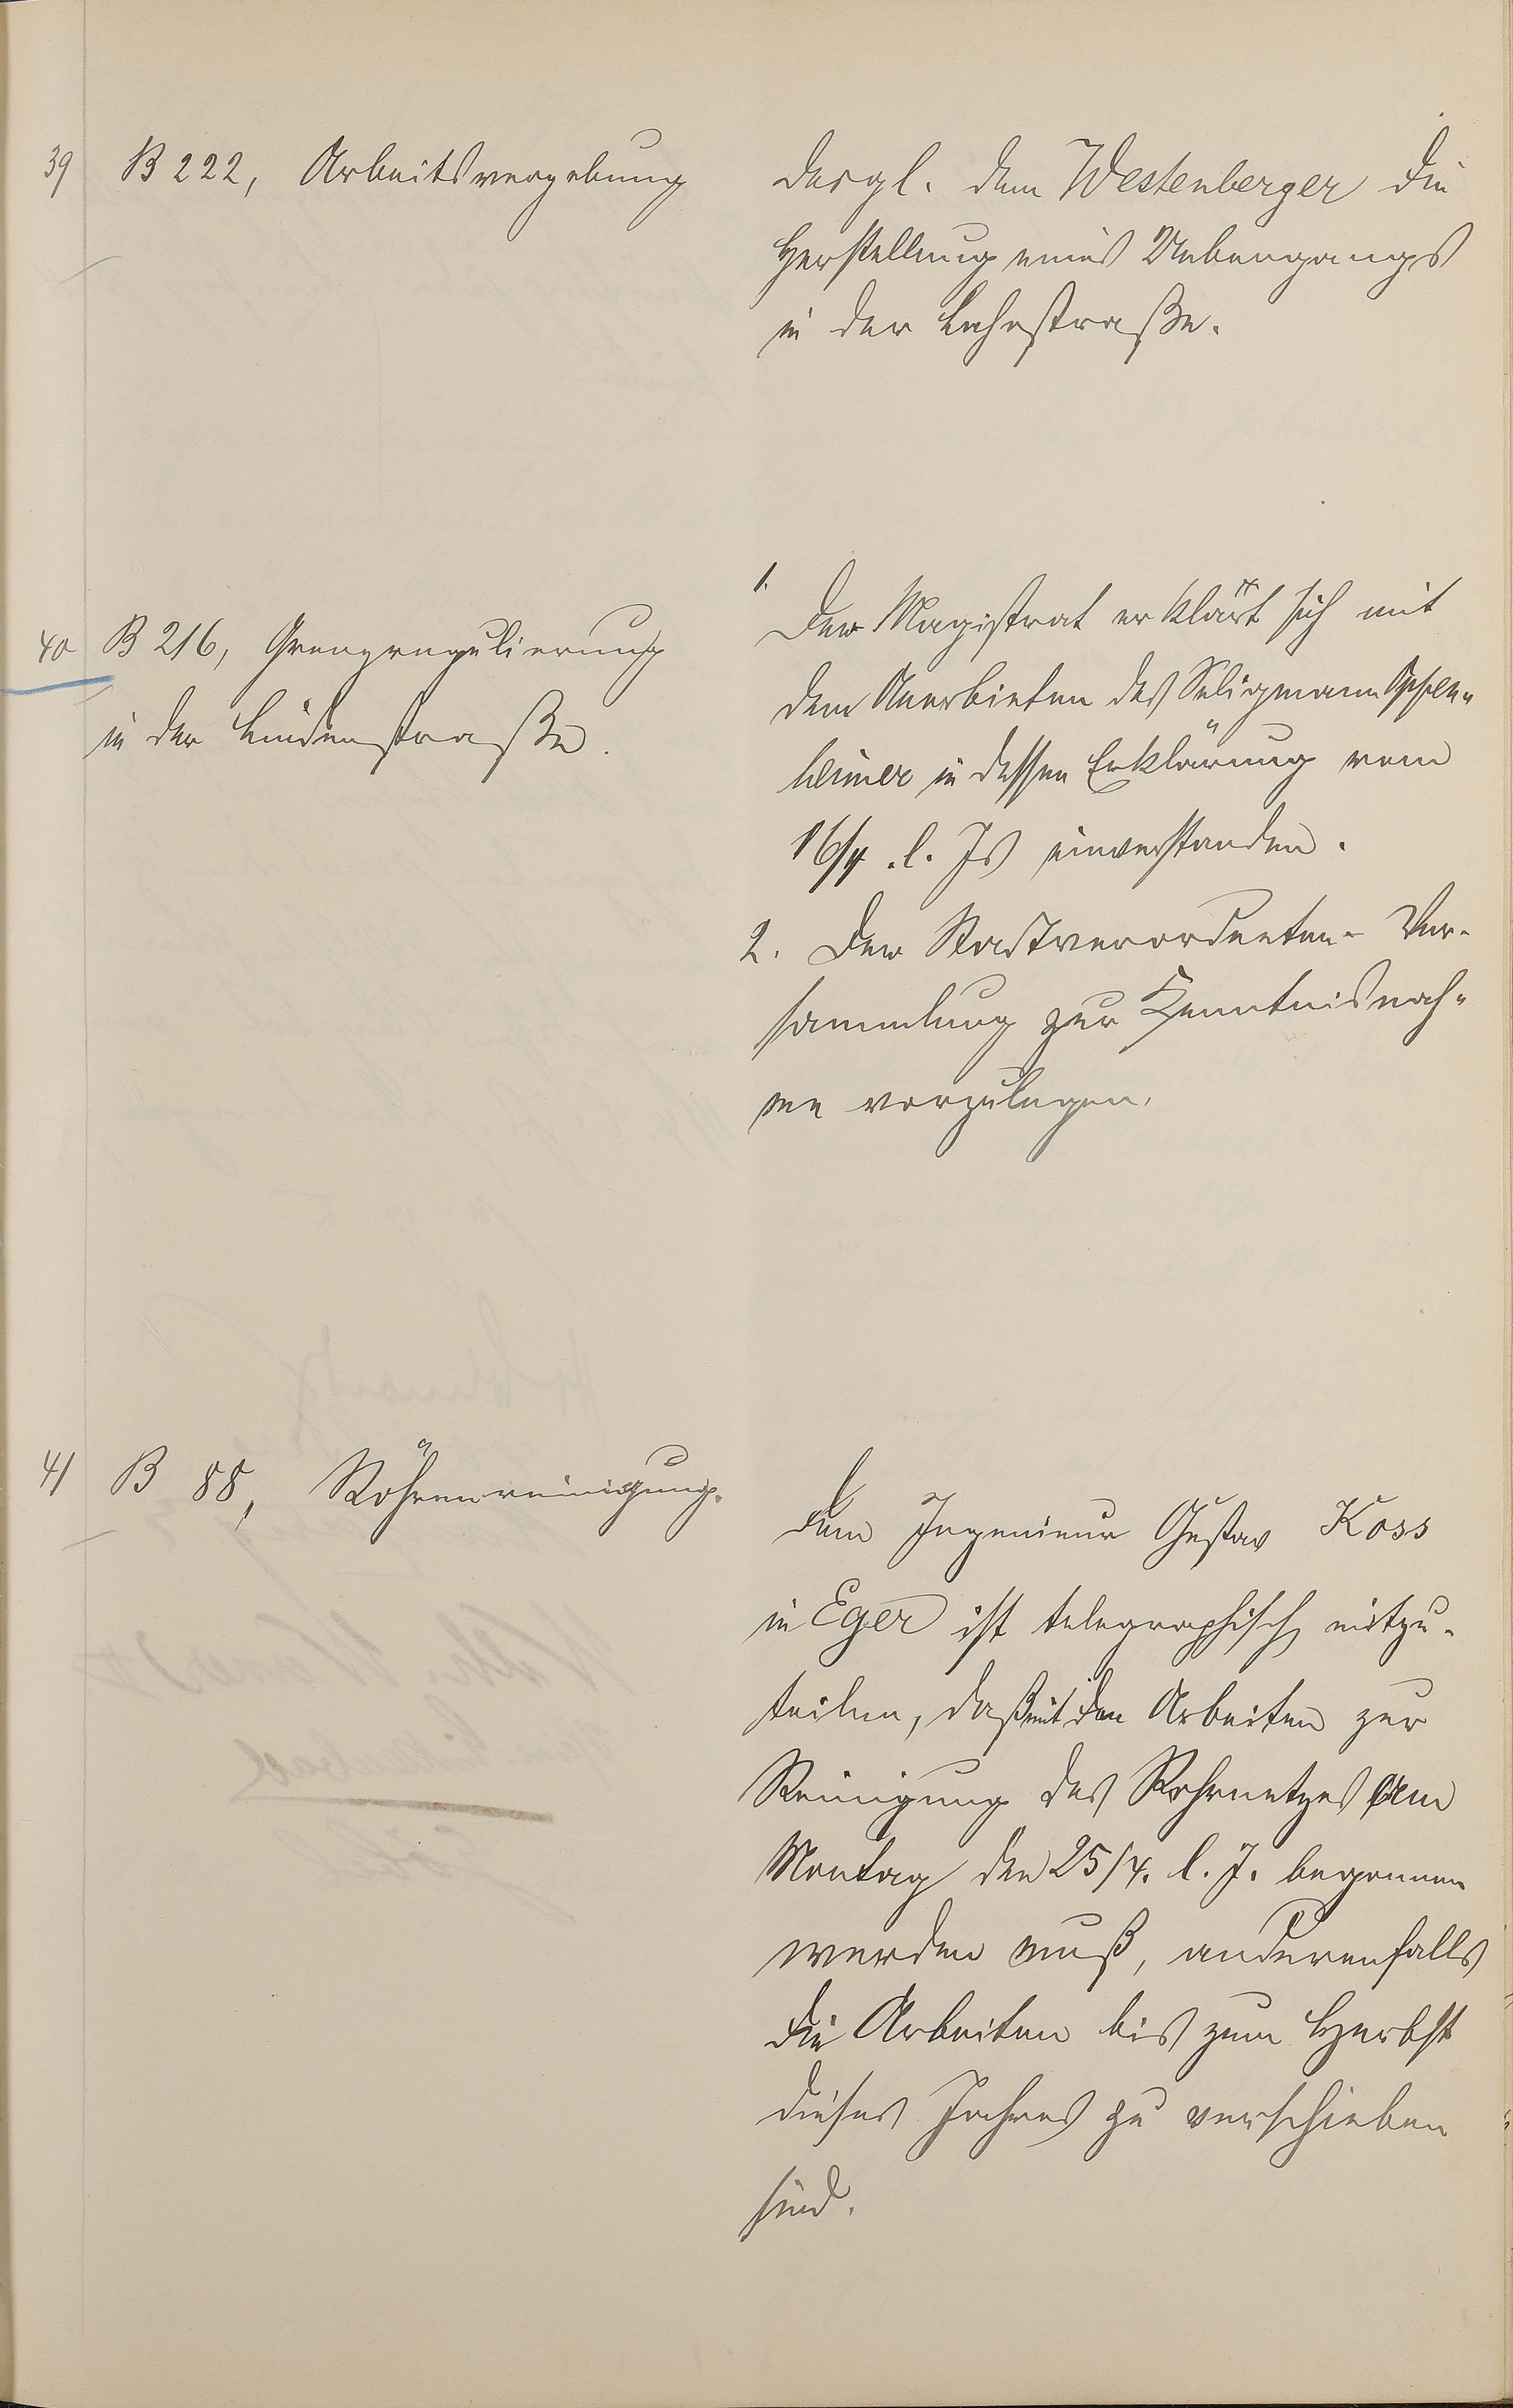 39 B 222, Arbeitsvergebung
desgl. dem Westenberger die
Herstellung eines Uebergangs
in der Lahnstraße.
40 B 216, Grenzregulierung
in der Lindenstraße.
1. Der Magistrat erklärt sich mit
dem Anerbieten des Seligmann Oppen-
heimer in dessen Erklärung vom
16/4. l. Js einverstanden.
2. Der Stadtverordneten-Ver-
sammlung zur Kenntnisnah-
me vorzulegen.
41 B 88, Röhrenreinigung.
Dem Ingenieur Gustav Koss
in Eger ist telegraphisch mitzu-
teilen, daß mit den Arbeiten zur
Reinigung des Rohrnetzes am
Montag den 25/4. l. J. begonnen
werden muß, anderenfalls
die Arbeiten bis zum Herbst
dieses Jahres zu verschieben
sind.